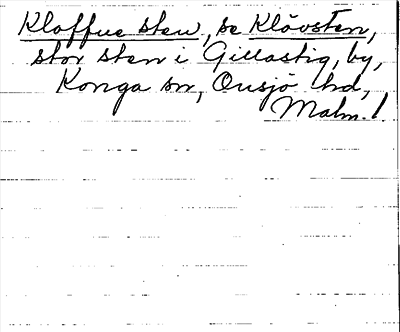 Kloffue sten, se Klövsten,
stor sten i Gillastig, by,
Konga sn, Onsjö hd,
Malm. l.